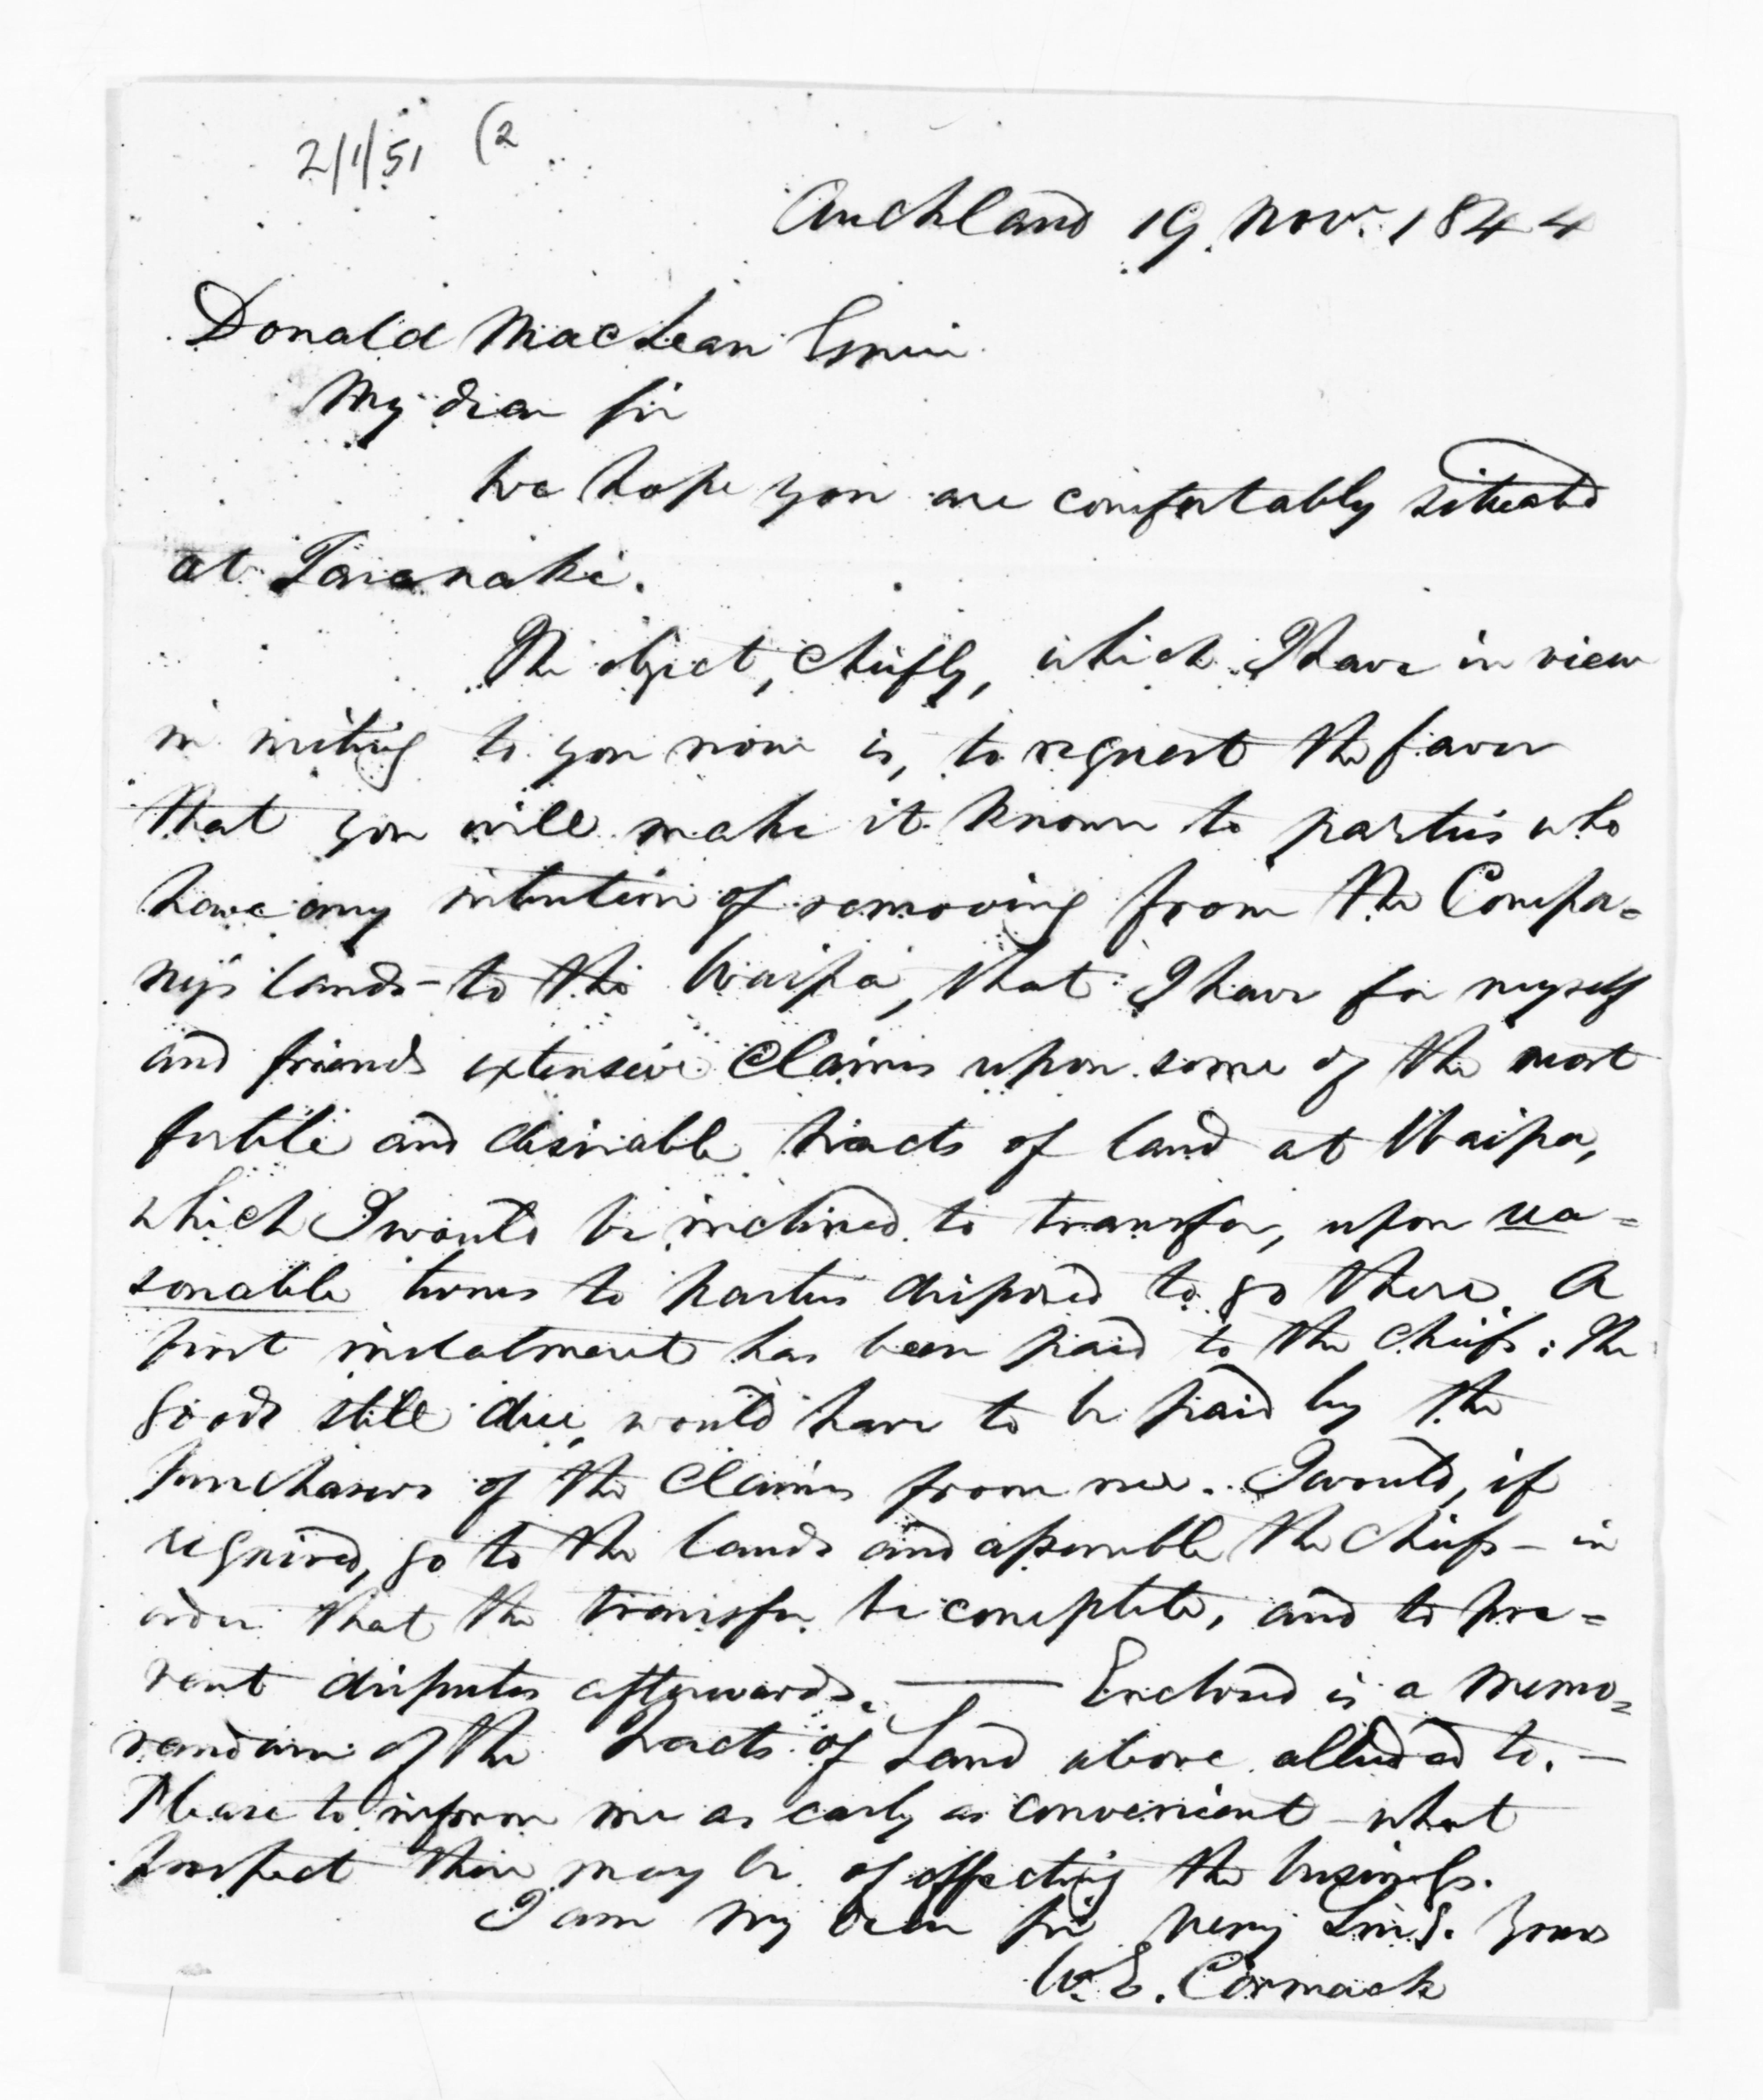 2/1/51 (2
Auckland 19. Nov.r 1844
Donald MacLean Esqre
My dear Sir
We hope you are comfortably situated
at Taranaki.
The object, chiefly, which I have in view
in writing to you now is, to request the favor
that you will make it known to parties who
have any intention of removing from the Compa=
ny's lands - to the Waipa, that I have for myself
and friends extensive claims upon some of the most
fertile and desirable tracts of land at Waipa,
which I would be inclined to transfer, upon rea=
sonable terms to parties disposed to go there. A
first instalment has been paid to the chiefs: The
goods still due, would have to be paid by the
purchasers of the claims from me. I would, if
required, go to the lands and assemble the chiefs - in
order that the transfer be complete, and to pre=
vent disputes afterwards. — Enclosed is a memo=
randum of the tracts of Land above alluded to. —
Please to inform me as early as convenient - what
prospect there may be of effecting the business.
I am my dear Sir, very Sin.y. Yours
W. E. Cormack